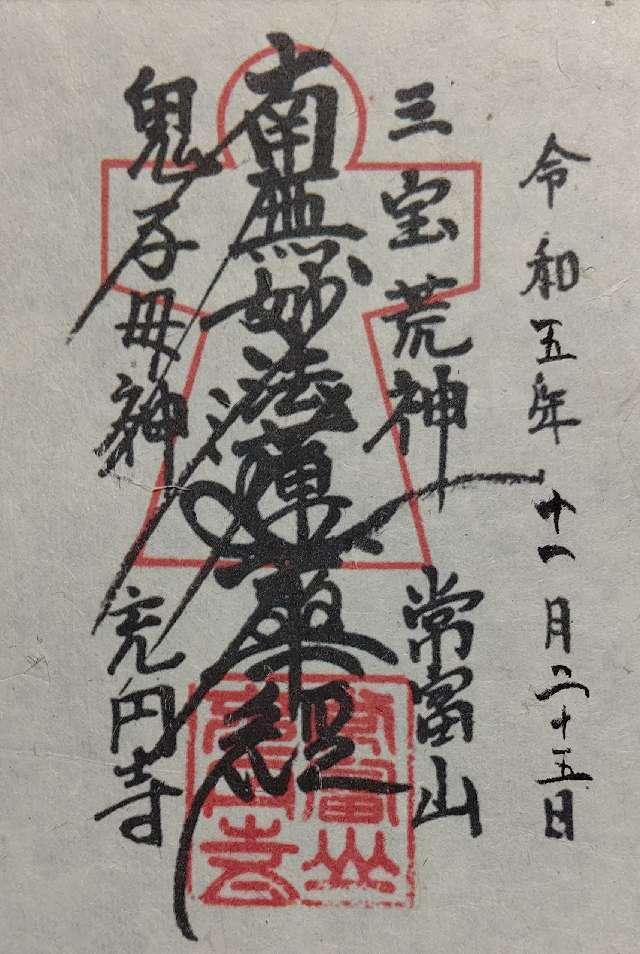 令和五年十一月二十五日
三宝荒神
常富山
南無妙法蓮華経
鬼子母神
充円寺